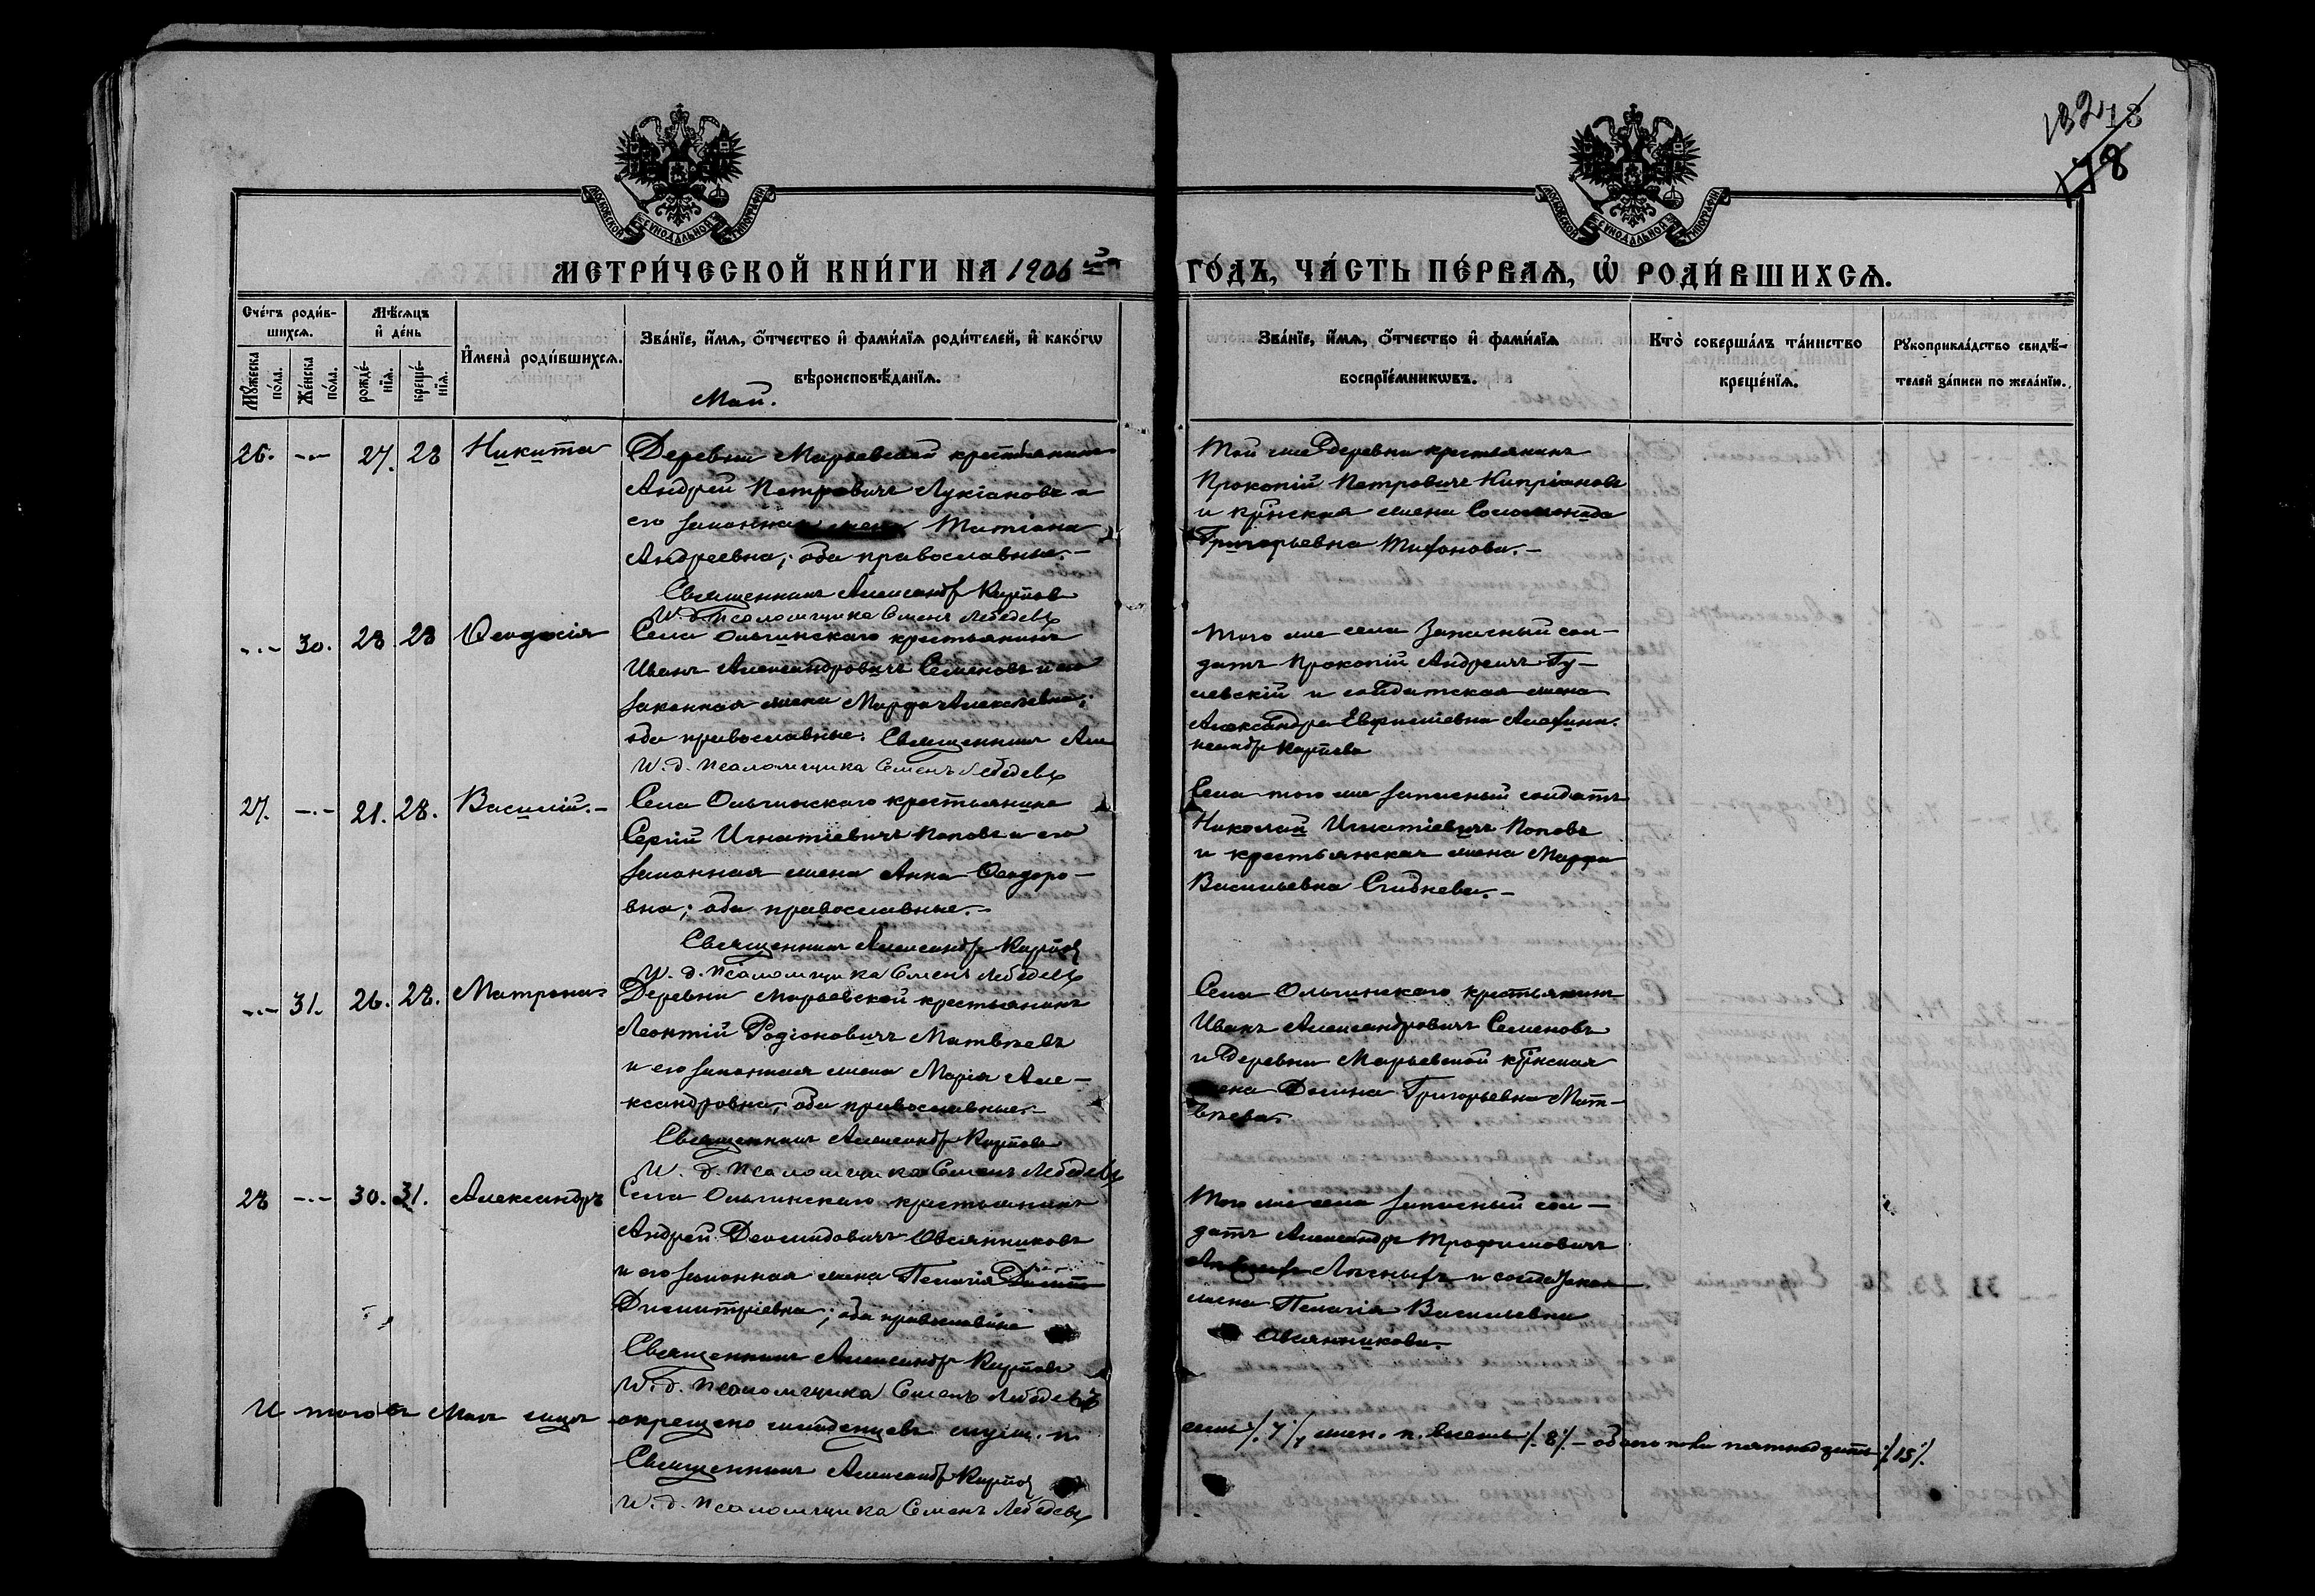 132 13
118
МОСКОВСКОЙ СѴНОДАЛЬНОЙ ТИПОГРАФІИ
МОСКОВСКОЙ СѴНОДАЛЬНОЙ ТИПОГРАФІИ
МЕТРИ́ЧЕСКОЙ КНИ́ГИ НА 1906 й
ГО́ДЪ, ЧА́СТЬ ПЕ́РВАѦ, Ѡ҆ РОДИ́ВШИХСѦ.
Сче́тъ роди́в-
шихсѧ.
Мꙋ́жеска
по́ла.
Же́нска
по́ла.
Мѣ́сѧцъ
и҆ де́нь
рожде́-
нїѧ.
креще́-
нїѧ.
И҆мена̀ роди́вшихсѧ.
Зва́нїе, и҆́мѧ, ѻ҆́тчество и҆ фами́лїѧ роди́телей, и҆ како́гѡ
вѣроисповѣ́данїѧ.
Зва́нїе, и҆́мѧ, ѻ҆́тчество и҆ фами́лїѧ
воспрїе́мникѡвъ.
Кто̀ соверша́лъ та́инство
креще́нїѧ.
Рꙋкоприкла́дство свидѣ́-
телей за́писи по жела́нїю.
Май.
26. -·- 27. 28 Никита
Деревни Марьевской крестьянинъ
Андрей Петровичъ Лукіановъ и
его законная жена Татіана
Андреевна; оба православные.-
Священникъ Александр Карпов
И. д. Псаломщика Семенъ Лебедевъ
Той же Деревни крестьянинъ
Прокопій Петровичъ Кипріановъ
и кр̃нская жена Соломонида
Григорьевна
-·- 30. 28 28 Ѳеодосія
Села Ольгинскаго крестьянинъ
Иванъ Александровичъ Семеновъ и его
законная жена Марфа Алексѣевна;
оба православные. Священникъ Але
И. д. Псаломщика Семенъ Лебедевъ
Того же села Запасный сол-
датъ Прокопій Андреичъ Гу-
левскій и солдатская жена
Александра
ксандр Карпов
27. -·- 21. 28. Василій.-
Села Ольгинскаго крестьянинъ
Сергій Игнатіевичъ Поповъ и его
законная жена Анна Ѳеодоро-
вна; оба православные.-
Священникъ Александр Карпов
И. д. Псаломщика Семенъ Лебедевъ
Села того же запасный солдатъ
Николай Игнатіевичъ Поповъ
и крестьянская жена Марфа
Васильевна
-·- 31. 26. 28. Матрона
Деревни Марьевской крестьянинъ
Леонтій Родіоновичъ Матвѣевъ
и его законная жена Марія Але-
ксандровна; оба православные.-
Священникъ Александр Карпов
И. д. Псаломщика Семенъ Лебедевъ
Села Ольгинскаго крестьянинъ
Иванъ Александровичъ Семеновъ
и Деревни Марьевской кр̃нская
жена Домна Григорьевна Мат-
вѣева.
28 -·- 30. 31. Александръ
Села Ольгинскаго крестьянинъ
Андрей Деомидовичъ Овсянниковъ
и его законная жена Пелагія Димит
Димитріевна; оба православные
Священникъ Александр Карпов
И. д. Псаломщика Семенъ Лебедевъ
Того же села запасный сол-
датъ Александръ Трофимовичъ
Лѣсныхъ и солдатская
жена Пелагія Васильевна
Овсянникова.-
Итого въ Маѣ мцѣ окрещено младенцевъ муж. п.
семь /.7/., жен. п. восемь /.8/. - обоего пола пятнадцать /.15/.
Священникъ Александр Карпов
И. д. Псаломщика Семенъ Лебедевъ